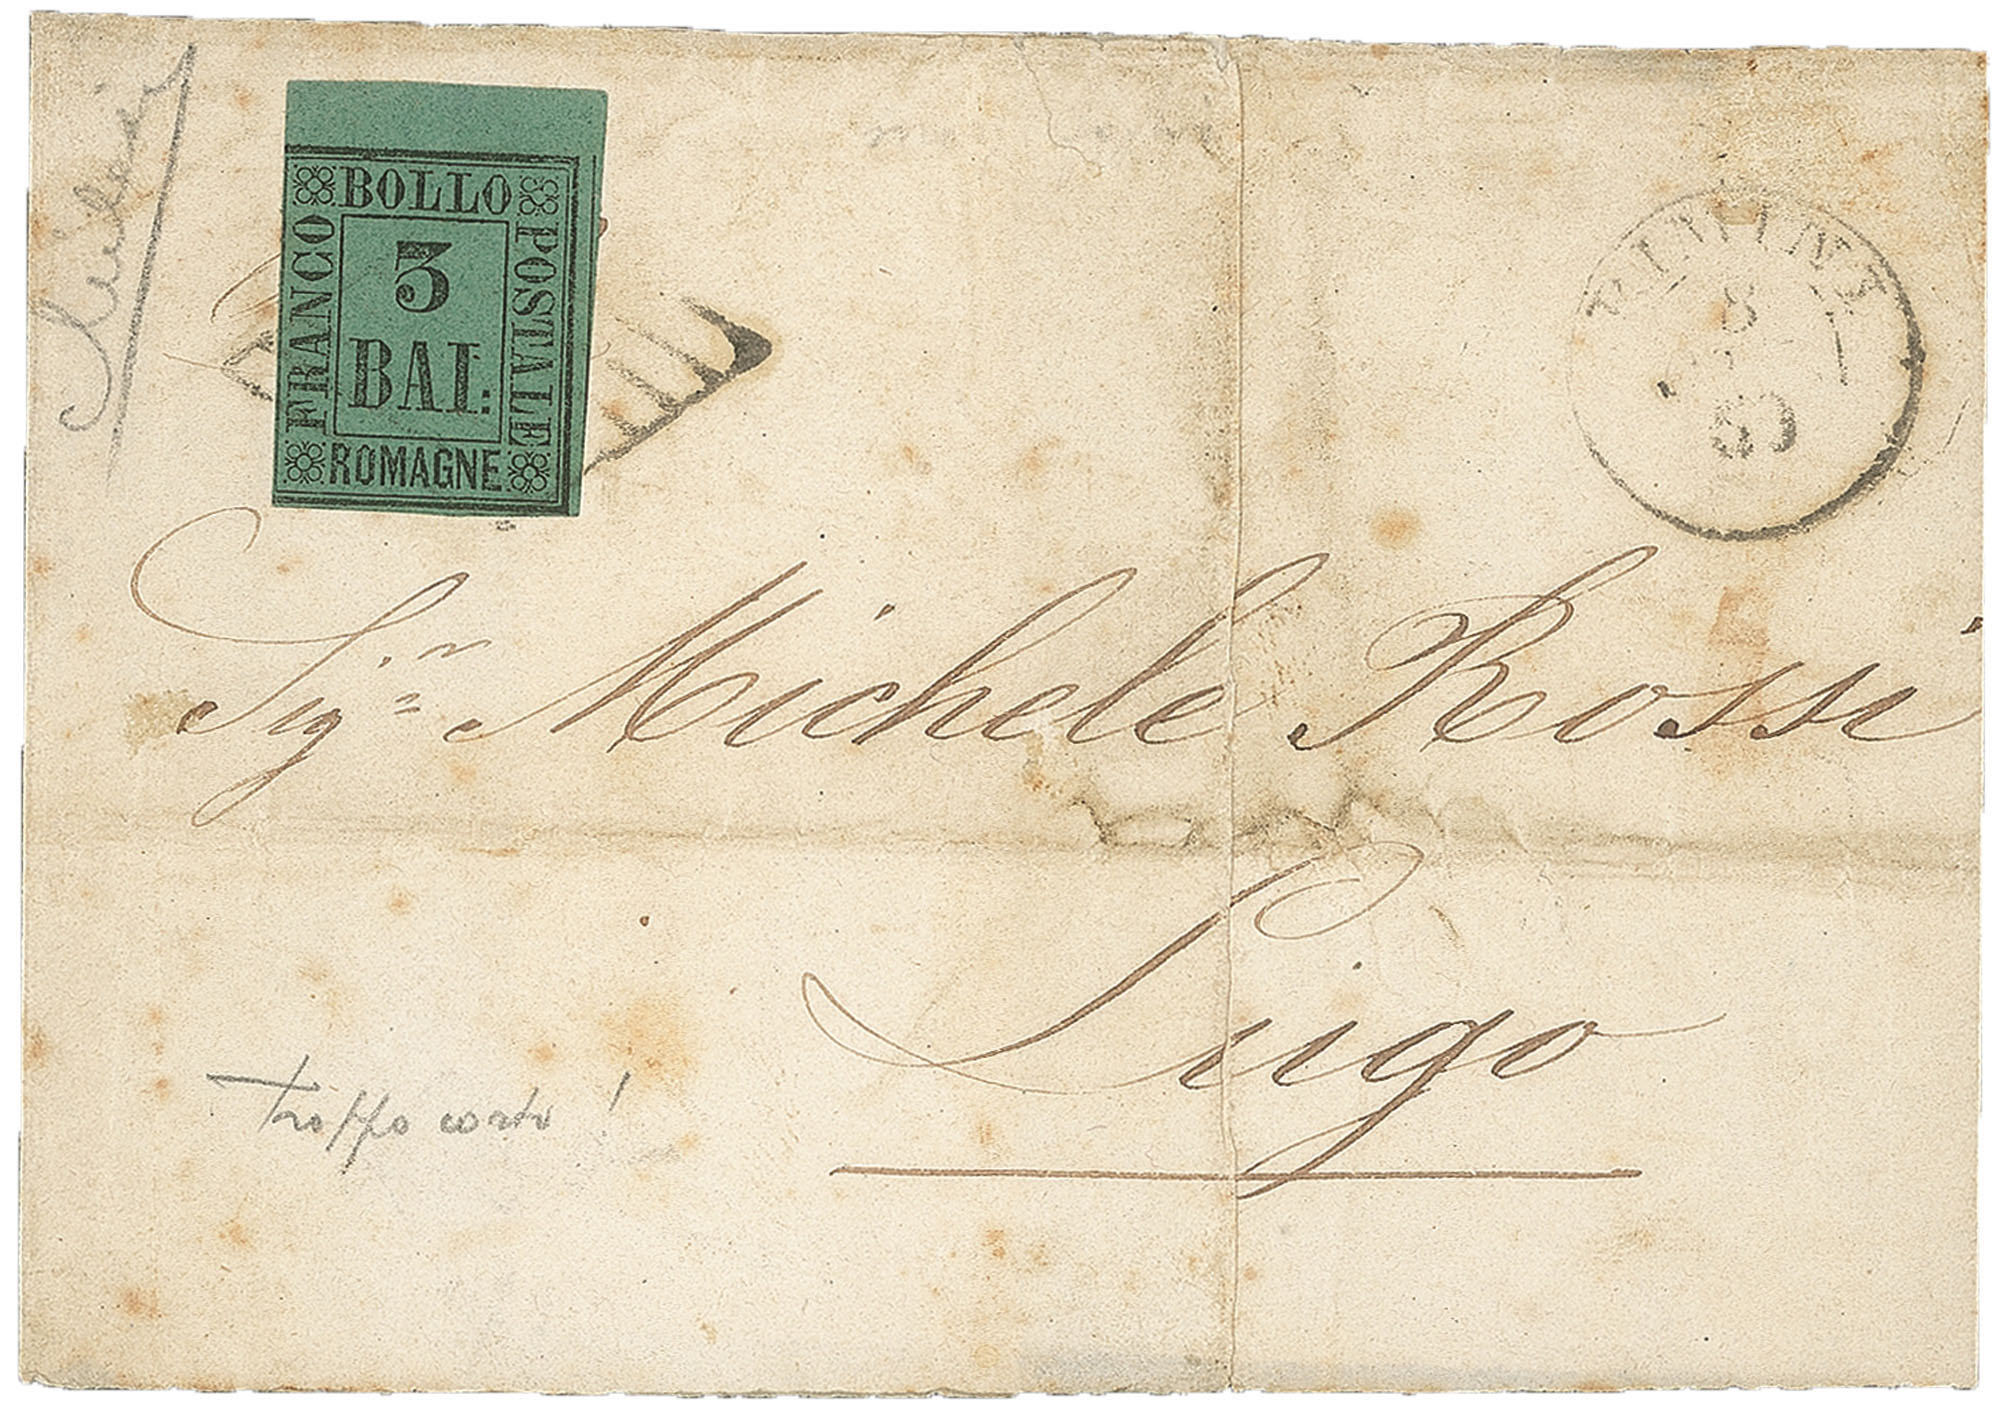 BOLLO
FRANCO
POSTALE
3
BAI:
ROMAGNE
RIMINI
8
60
Sig.r Michele Rossi
Lugo
troppo corto!